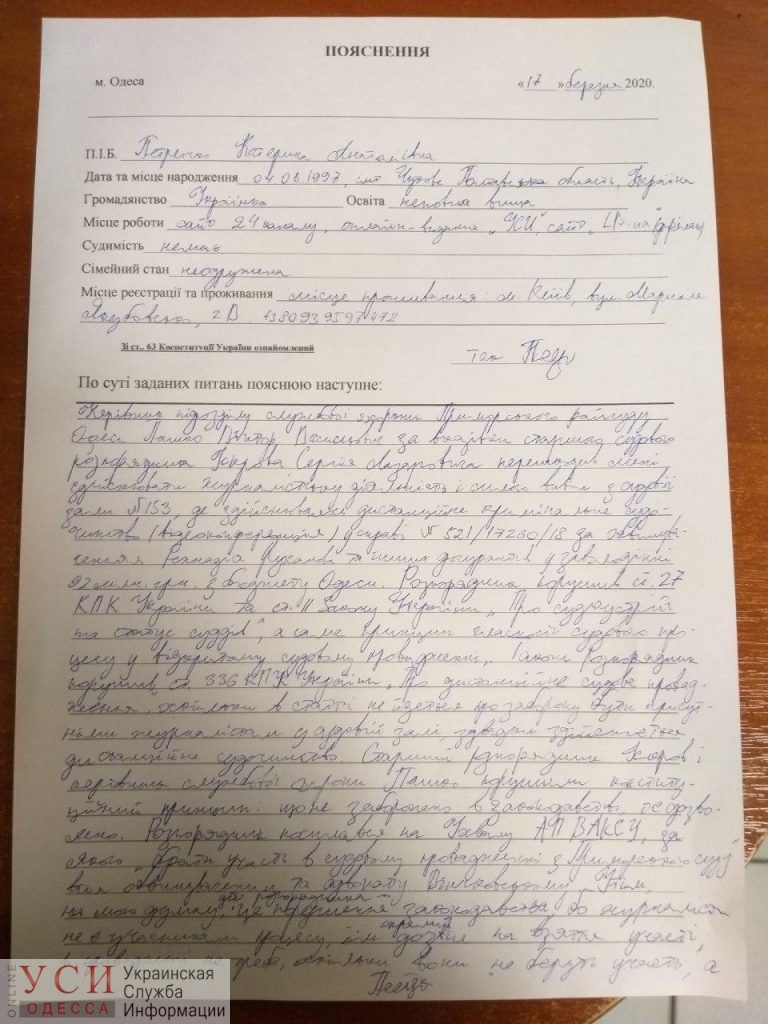 ПОЯСНЕННЯ
м. Одеса «17 » березня 2020.
П.І.Б. Петренко Катерина Анатоліївна
Дата та місце народження 04.08.1997, смт Чутове Полтавська область, Україна
Громадянство Українка Освіта неповна вища
Місце роботи сайт 24 каналу, онлайн-видання
Судимість немає
Сімейний стан неодружена
Місце реєстрації та проживання місце проживання: м. Київ, вул.
2В
Зі ст.. 63 Конституції України ознайомлений
так
По суті заданих питань пояснюю наступне:
Керівник підрозділу службової охорони Приморського райсуду
Одеси Віктор Васильович за вказівки старшого судового
розпорядника Сергія Лазаровича перешкодив мені
здійснювати журналістську діяльність і силою вивів з судової
зали №153, де здійснювалось дистанційне кримінальне судо-
чинство (відеоконференція) у справі № 521/17260/18 за
та інших у заволодінні
92 млн. грн. з бюджету Одеси. Розпорядник порушив ст. 27
КПК України та ст. 11 Закону України „Про судоустрій
та статус суддів", а саме принцип гласності судового про-
цесу у відкритому судовому провадженні. Також розпорядник
порушив ст. 336 КПК України „Про дистанційне судове провад-
ження, оскільки в статті не йдеться про заборону бути присут-
німи журналістам у судовій залі, звідки здійснюється
дистанційне судочинство. Старший розпорядник і
керівник службової охорони порушили конститу-
ційний принцип: що не заборонено в законодавстві, те дозво-
лено. Розпорядник посилався на Ухвалу АП ВАКСУ, за
якою „брати участь в судовому провадженні з суду
та адвокату
на мою думку, це порушення законодавства, бо журналісти
не є учасниками процесу, їм окремий дозвіл на взяття участі
не треба, оскільки вони не беруть участь, а
ONLINE
УСИ
ОДЕССА
Украинская
Служба
Информации